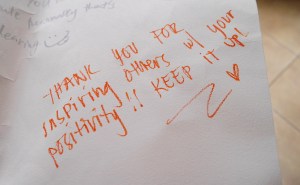 THANK YOU FOR
inspiring others w/ your
positivity!! KEEP it up!